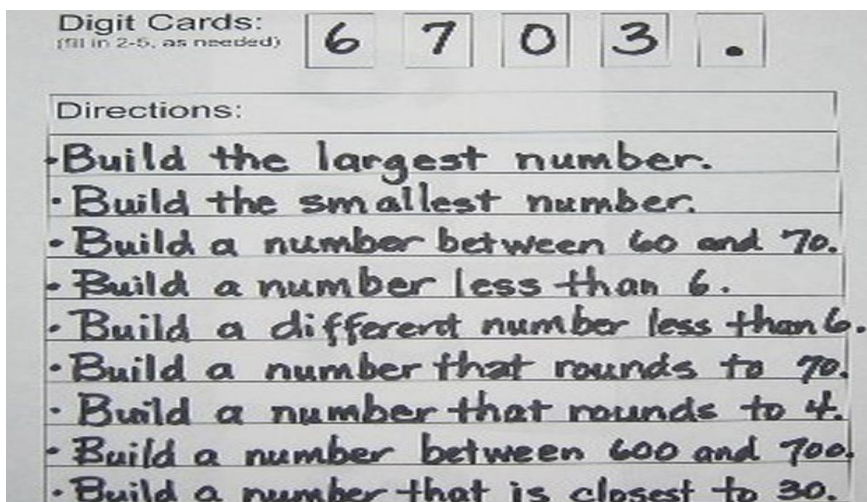 Digit Cards: 6 7 0 3 .
(fill in 2-5, as needed)
Directions:
·Build the largest number.
·Build the smallest number.
·Build a number between 60 and 70.
·Build a number less than 6.
·Build a different number less than 6.
·Build a number that rounds to 70.
·Build a number that rounds to 4.
·Build a number between 600 and 700.
·Build a number that is closest to 30.